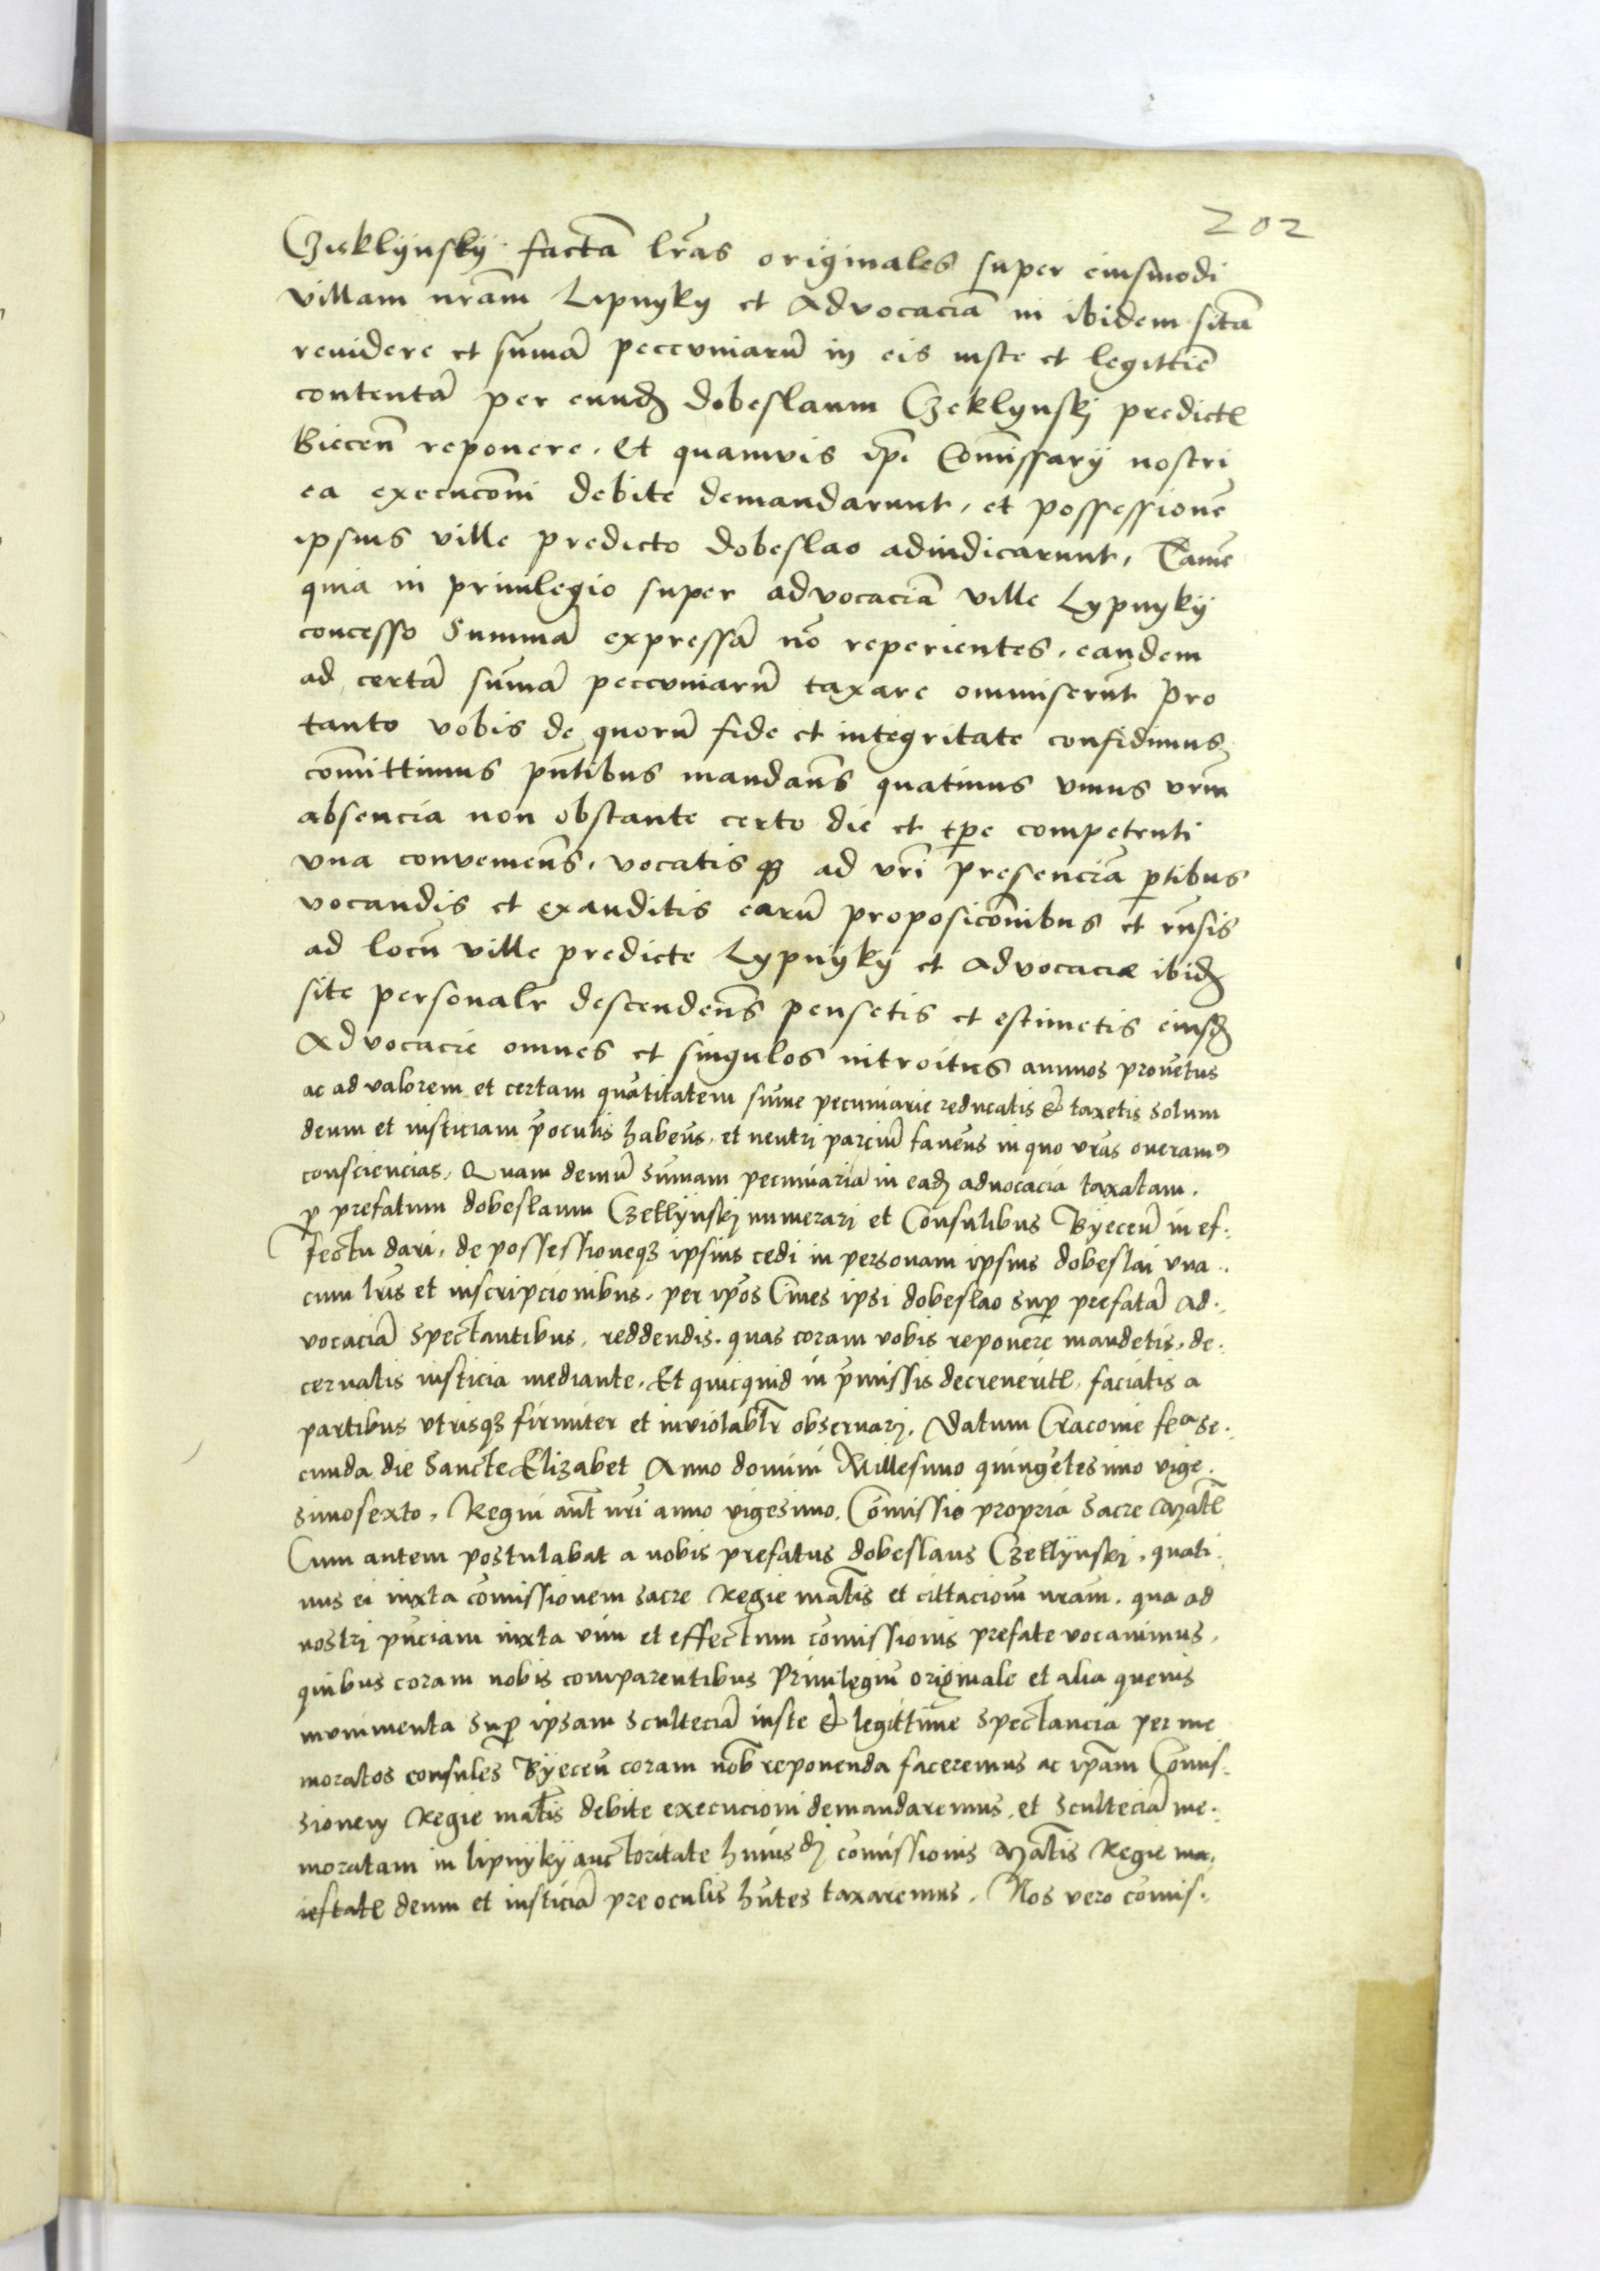 202
Czieklijnskij factã lrãs originales super eiusmodi
villam nrãm Lipnyky et Advocaciã in ibidem sitã
reuidere et sũmã peccuniarũ in eis iuste et legittiẽ
contentã per eundẽ Dobeslaum Czeklynskj predictẽ
Biecen̄ reponere. Et quamvis ip̄i Com̃issarij nostri
ea execucõni debite demandarunt, et possessionẽ
ipsius ville predicto Dobeslao adiudicarunt, Tamẽ
quia in priuilegio super advocaciã ville Lypnykÿ
concesso Summã expressã nõ reperientes, eandem
ad certã sũmã peccuniarũ taxare ommiserũt Pro
tanto vobis de quorũ fide et integritate confidimus
com̃ittimus pñtibus mandañs quatinus vnius vr̃m
absencia non obstante certo die et tp̄e competenti
vna conveniens̃, vocatisqȝ ad vr̃i presenciã p̄tibus
vocandis et exauditis earũ proposicõnibus et rñsis
ad locũ ville predicte Lypnÿkÿ et Advocacie ibidẽ
site personalr̃ descendeñs pensetis et estimetis eiusdẽ
Advocacie omnes et singulos introitus annuos prouẽtus
ac ad valorem et certam quãtitatem sũme pecuniarie reducatis et taxetis solum
deum et iusticiam p̃ oculis habeñs, et neutri parciũ faueñs in quo vr̃as oneramꝰ
consciencias, Quam demũ sũmam pecuniariã in eadẽ aduocacia taxatam.
p̄ prefatum Dobeslaum Czeklÿnskj numerari et Consulibus Bÿeceñ in ef-
fectu dari, de possessioneqȝ ipsius cedi in personam ipsius Dobeslai vna
cum lr̃is et inscripcionibus, per ip̄os Ciues ipsi Dobeslao sup̄ prefatã Ad-
vocaciã spectantibus, reddendis, quas coram vobis reponere mandetis, de-
cernatis iusticia mediante, Et quicquid in p̃missis decreueritẽ, faciatis a
partibus vtrisqȝ firmiter et inviolabl̃r obseruarj, Datum Cracovie feᵃ se-
cunda die Sancte Elizabet Anno domini Millesimo quingẽtesimo vige-
simosexto, Regni aũt nr̃i anno vigesimo, Com̃issio propria Sacre Mãtẽ
Cum autem postulabat a nobis prefatus Dobeslaus Czeklÿnskj, quati-
nus ei iuxta com̃issionem sacre Regie mãtis et cittacioñ nr̃am, qua ad
nostrj pñciam iuxta vim et effectum com̃issionis prefate vocauimus,
quibus coram nobis comparentibus Priuilegiũ originale et alia queuis
munimenta sup̄ ipsam sculteciã iuste et legittime spectancia per me
moratos consules Bÿeceñ coram nob̃ reponenda faceremus ac ip̄am Com̃is-
sionem Regie mãtis debite execucioni demandaremus, et sculteciã me-
moratam in lipnÿkÿ auctoritate huiusdẽ com̃issionis Mãtis Regie ma-
iestatẽ deum et iusticiã pre oculis hñtes taxaremus. Nos vero com̃is-